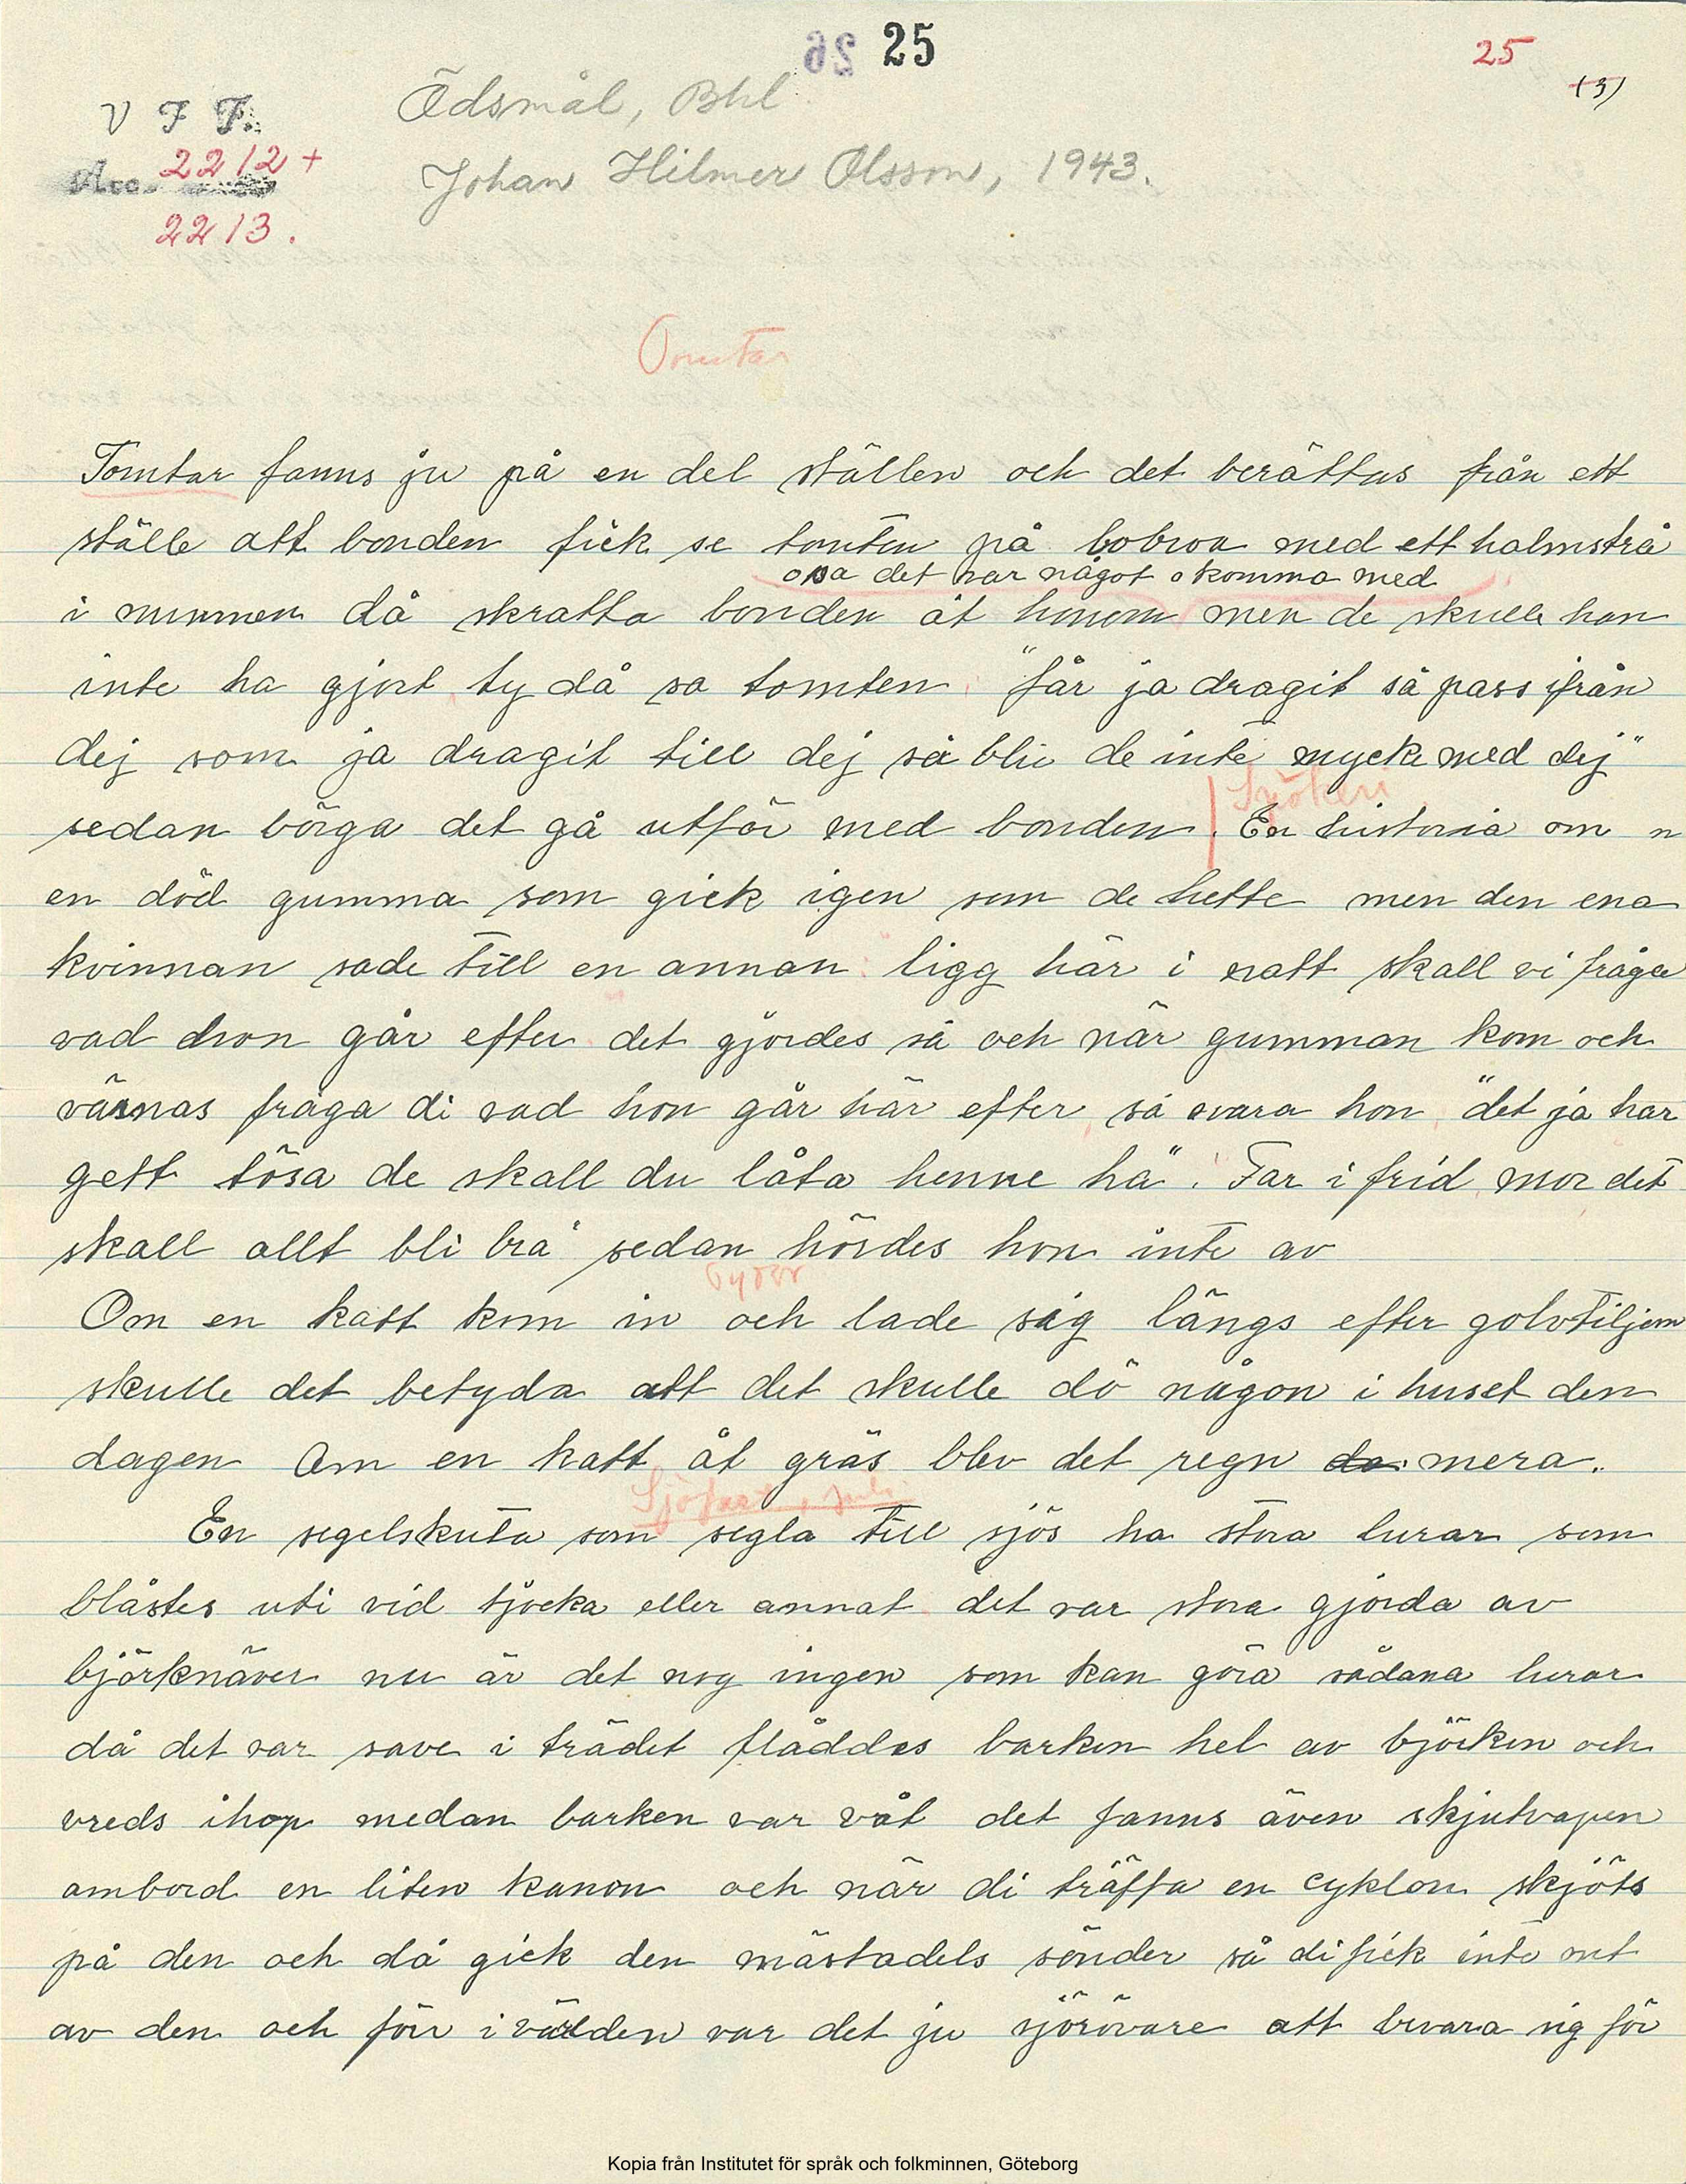 26 25
25
(3)
V F F.
Acc. 2212 +
2213.
Ödsmål, Bhl
Johan Hilmer Olsson, 1943.
Tomtar
Tomtar fanns ju på en del ställen och det berättas från ett
ställe att bonden fick se tomten på lobroa med ett halmstrå
o sa det var något o komma med
i munnen då skratta bonden åt honom men de skulle han
inte ha gjort ty då sa tomten "får ja dragit så pass ifrån
dej som ja dragit till dej så blir de inte mycke med dej"
Spökeri
sedan börga det gå utför med bonden. En historia om n
en död gumma som gick igen som de hette men den ena
kvinnan sade till en annan ligg här i natt skall vi fråga
vad hon går efter det gjordes så och när gumman kom och
fråga di vad hon går här efter, så svara hon, "det ja har
gett tösa de skall du låta henne ha". Far i frid mor det
skall allt bli bra" sedan hördes hon inte av
Tydor
Om en katt kom in och lade sig längs efter golvtiljem
skulle det betyda att det skulle dö någon i huset den
dagen Om en katt åt gräs blev det regn da mera.
Sjöfart, Jul
En segelskuta som segla till sjös ha stora lurar som
blåstes uti vid tjocka eller annat det var stora gjorda av
björknäver nu är det nog ingen som kan göra sådana lurar
då det var save i trädet flåddes barken hel av björken och
vreds ihop medan barken var våt det fanns även skjutvapen
ombord en liten kanon och när di träffa en cyklon skjöts
på den och då gick den mästadels sönder så di fick inte ont
av den och förr i världen var det ju sjörövare att bevara sig för
Kopia från Institutet för språk och folkminnen, Göteborg